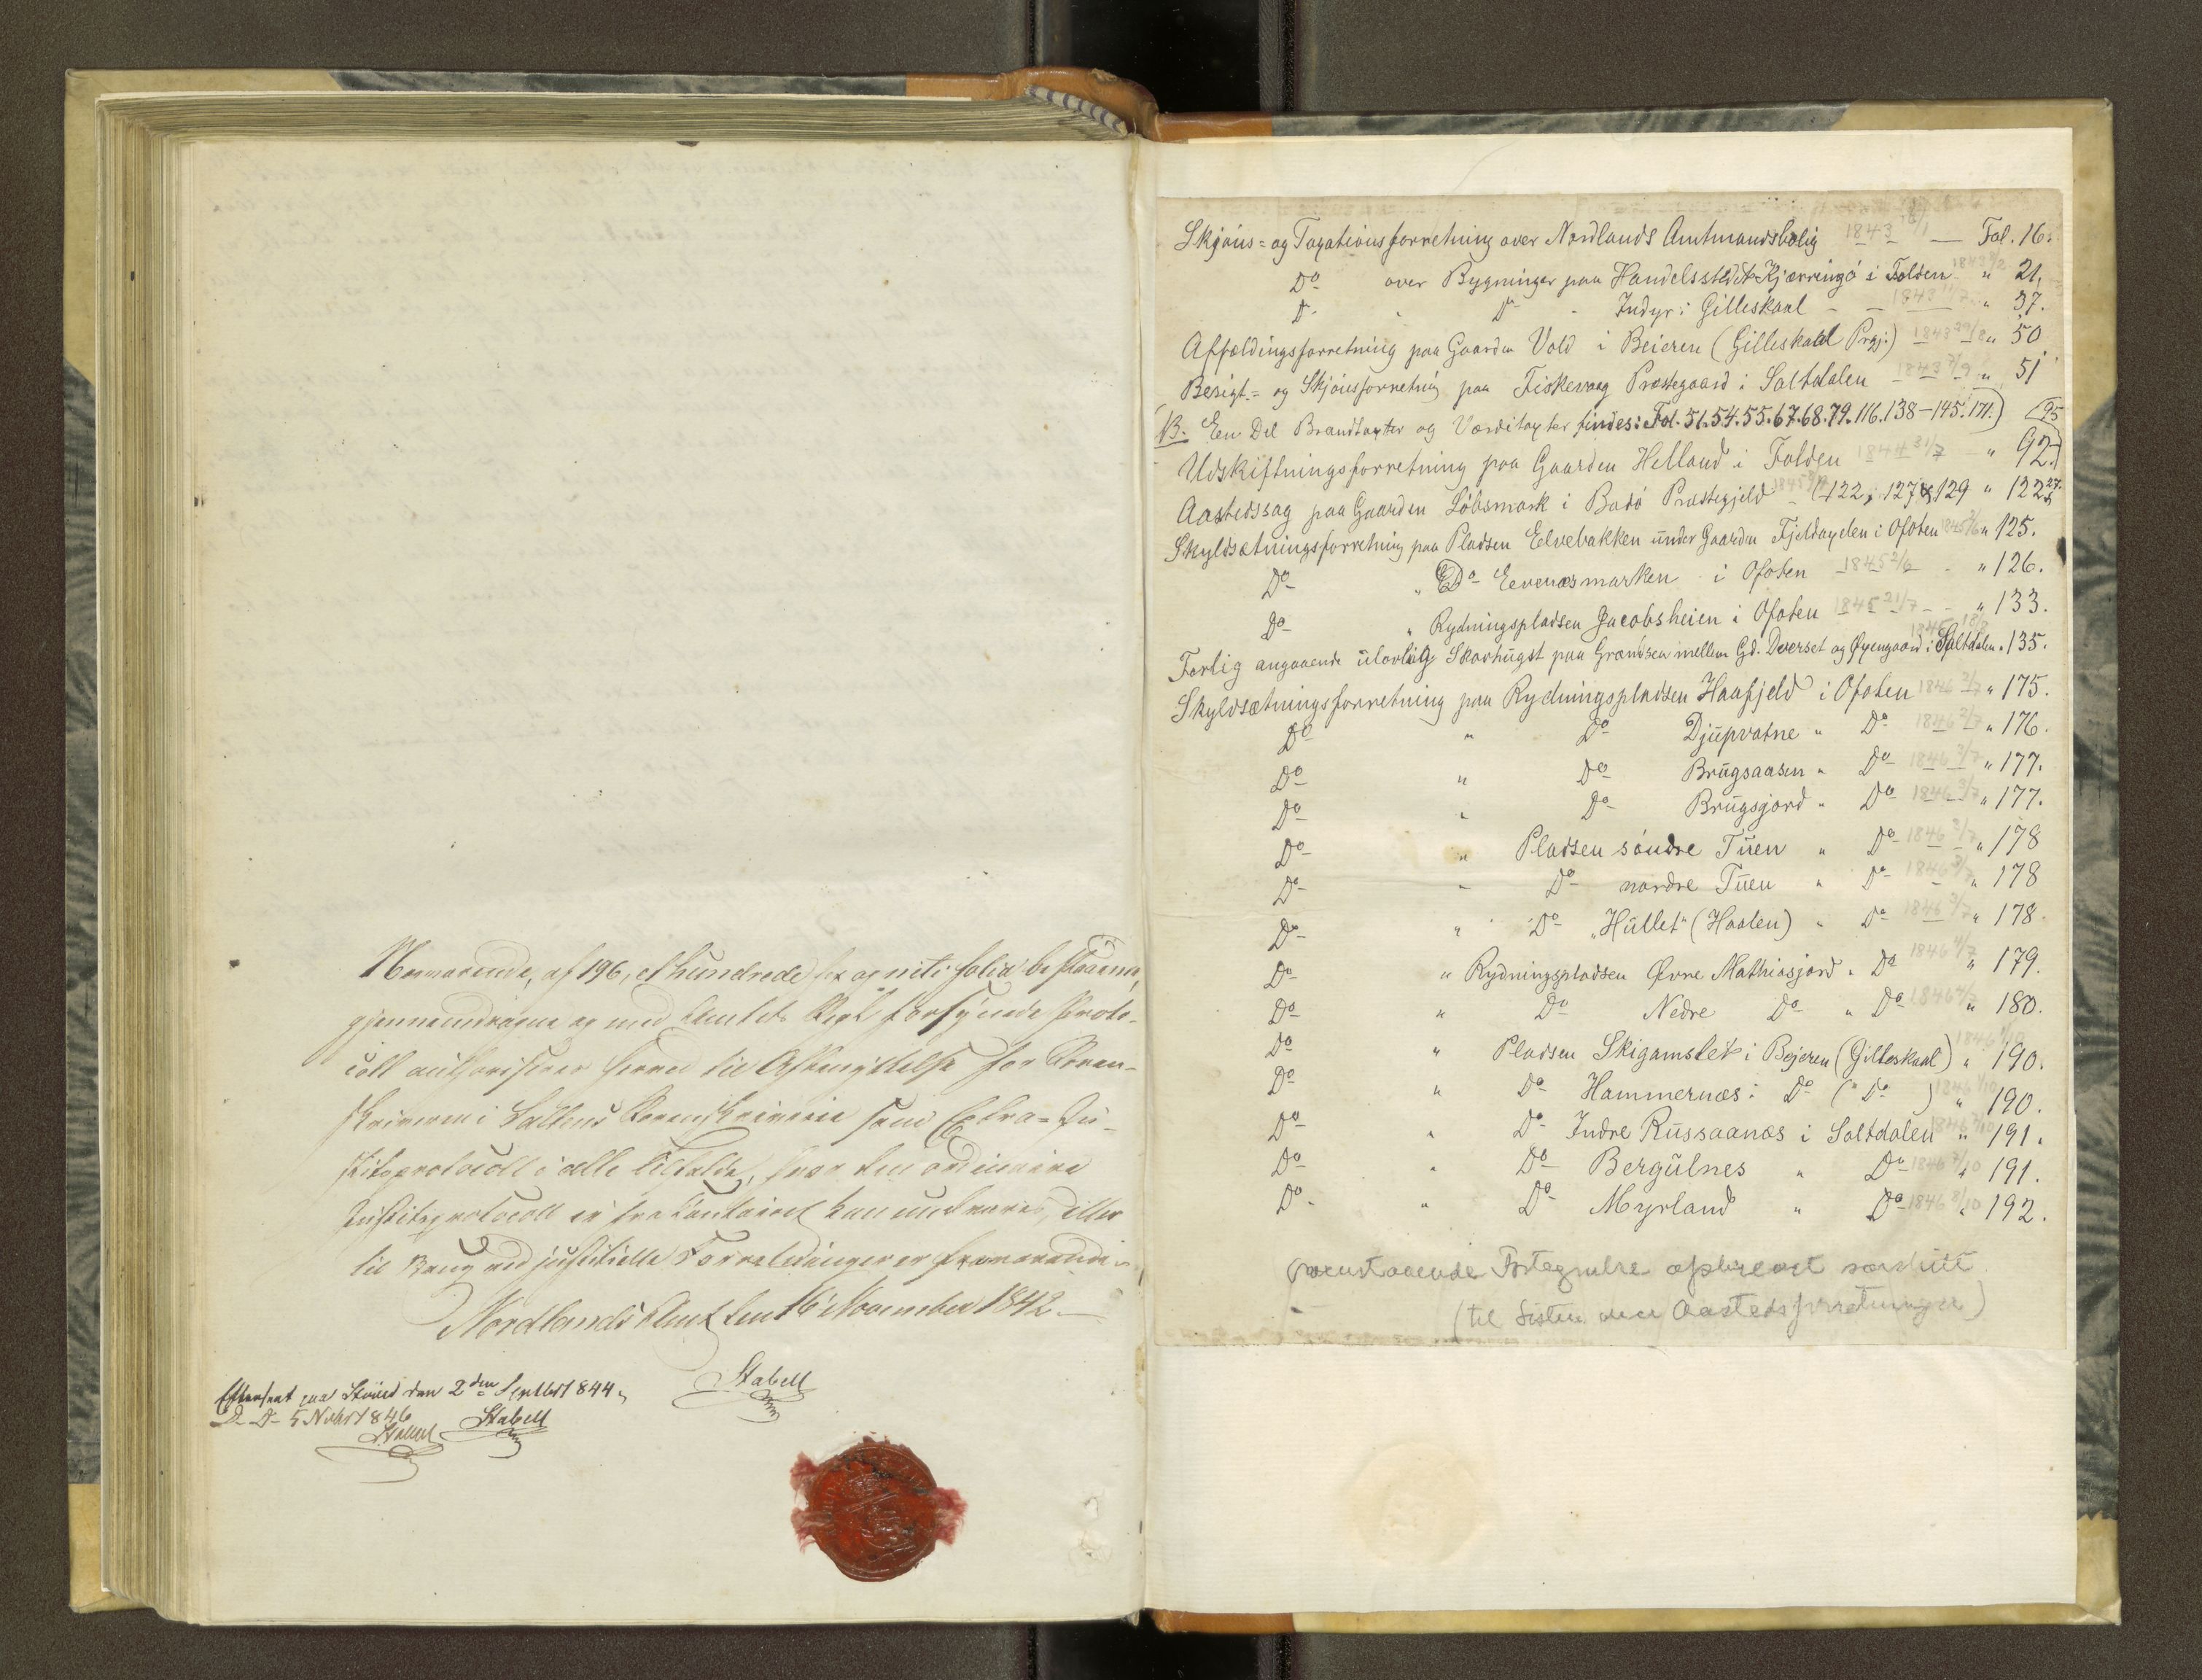 Nærværende, af 196, et hundrede sex og niti folia bestaaende,
gjennemdragne og med Amtets Segl forsynede Proto-
coll authoriseres herved til Afbenyttelse for Soren-
skriveren i Saltens Sorenskriverie som Extra-Ju-
stitsprotocoll i alle Tilfælde, hvor den ordinaire
Justitsprotocoll ei fra Contoiret kan undværes, eller
til Brug ved justitielle Forretninger er fraværende.
Nordlands Amt den 16 November 1842
Stabell
Efterseet paa Stóvset den 2den Septbr 1844.
Do Do 5 Novbr 1846
Stabell
Stabell
Skjóns- og Taxationsforretning over Nordlands Amtmandsbolig 1843 18/1 — Fol. 16.
Do over Bygninger paa Handelsstedet Kjærringó i Folden 1843 " 21.
Do " Do - Indyr i Gilleskaal 1843 " 37.
Affældingsforretning paa Gaarden Vold i Beieren (Gilleskaal Prgj.) 1843 29/8 " 50
Besigt.- og Skjónsforretning paa Fiskevaag Præstegaard i Saltdalen 1843 7/9 " 51
NB. Een Del Brandtaxter og Værditaxter findes: Fol. 51. 54. 55. 67. 68. 79. 116. 138-145. 171.) (95
Udskiftningsforretning paa Gaarden Helland i Folden 1844 31/7 " 92.)
Aastedssag paa Gaarden Lóbsmark i Bodó Præstegjeld 1845 (122, 127 & 129 " 122, 27.
Skyldsætningsforretning paa Pladsen Elvebakken under Gaarden Fjeldaxelen i Ofoten 1845 2/6 " 125.
Do " Do Eevenæsmarken i Ofoten 1845 2/6 " 126.
Do " Rydningspladsen Jacobsheien i Ofoten 1845 21/7 " 133.
Forlig angaaende ulovlig Skovhugst paa Grændsen mellem Gd. Dverset og Øyengaard i Saltdalen 1845 18/8 " 135.
Skyldsætningsforretning paa Rydningspladsen Haafjeld i Ofoten 1846 2/7 " 175.
Do " Do Djupvatne " Do 1846 2/7 " 176.
Do " Do Brugsaasen " Do 1846 3/7 " 177.
Do " Do Brugsjord " Do 1846 3/7 " 177.
Do " Pladsen sóndre Tuen " Do 1846 3/7 " 178
Do " Do nordre Tuen " Do 1846 3/7 " 178
Do " Do "Hullet" (Haalen) " Do 1846 3/7 " 178
Do " Rydningspladsen Øvre Mathiasjord " Do 1846 4/7 " 179.
Do " Do Nedre Do " Do 1846 4/7 " 180.
Do " Pladsen Skigamslet i Bejeren (Gilleskaal) 1846 1/10 " 190.
Do " Do Hammernæs i Do (" Do ) 1846 1/10 " 190.
Do " Do Indre Russaanæs i Saltdalen 1846 7/10 " 191.
Do " Do Bergulnes " Do 1846 7/10 " 191.
Do " Do Myrland " Do 1846 8/10 " 192.
Fortegnelse
(til Listen over Aastedsforretninger)